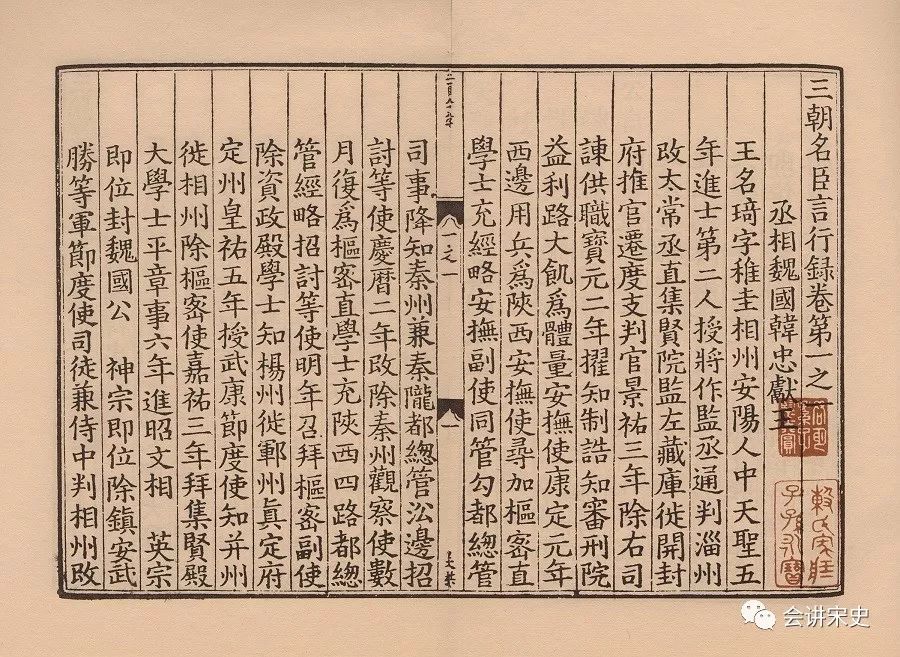 三朝名臣言行録卷第一之一
丞相魏國韓忠獻王
王名琦字稚圭相州安陽人中天聖五
年進士第二人授將作監丞通判淄州
改太常丞直集賢院監左藏庫徙開封
府推官遷度支判官景祐三年除右司
諫供職寶元二年擢知制誥知審刑院
益利路大飢爲體量安撫使康定元年
西邊用兵爲陝西安撫使尋加樞密直
學士充經略安撫副使同管勾都總管
八一之一
司事降知秦州兼秦隴都總管㳂邊招
討等使慶曆二年改除秦州觀察使數
月復爲樞密直學士充陝西四路都總
管經略招討等使明年召拜樞密副使
除資政殿學士知楊州徙鄆州眞定府
定州皇祐五年授武康節度使知并州
徙相州除樞密使嘉祐三年拜集賢殿
大學士平章事六年進昭文相 英宗
即位封魏國公 神宗即位除鎭安武
勝等軍節度使司徒兼侍中判相州改
会讲宋史